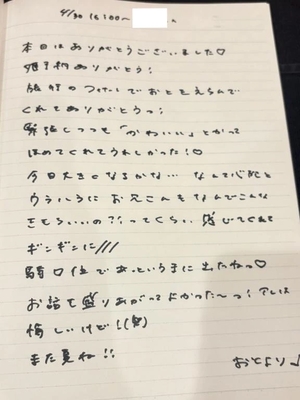 4/30 16:00〜
本日はありがとうございました♡
選手柄ありがとう!
旅行のついでにおとをえらんで
くれてありがとうっ!
緊張しつつも「かわいい」とかって
ほめてくれてうれしかった!♡
今日大きくなるかな…なんて心配と
ウラハラにお兄さんもなんでこんな
きもちいいの?!ってくらい感じてくれて
ギンギンに///
騎○位であっという間に出たねっ♡
お話も盛りあがってよかった〜っ!アレは
悔しいけど!(笑)
また夏ね!!
おとより♪